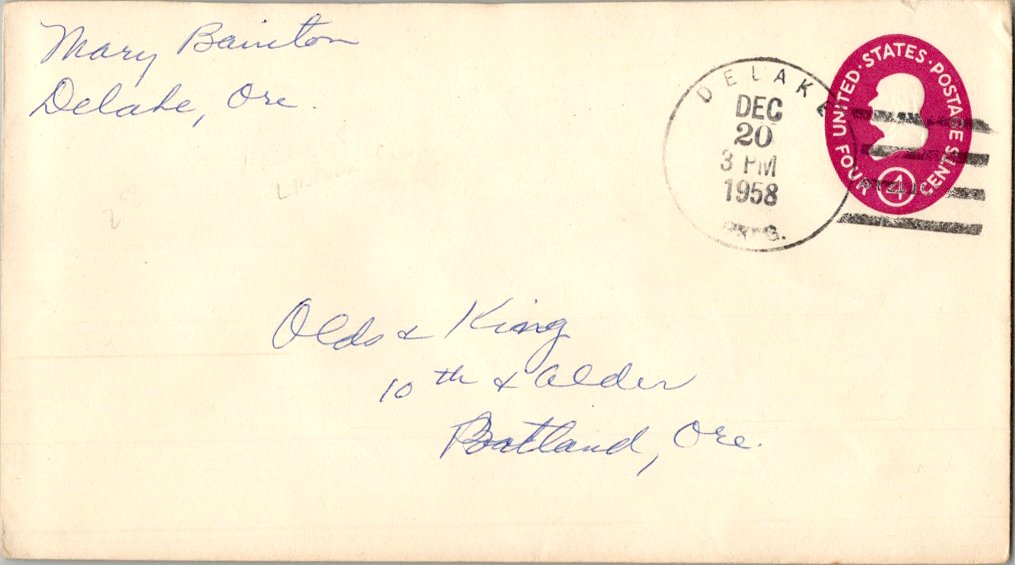 Mary Bainton
Delake, Ore.
DELAKE
DEC
20
3 PM
1958
UNITED·STATES·POSTAGE
FOUR 4 CENTS
Olds & King
10th & Alder
Portland, Ore.